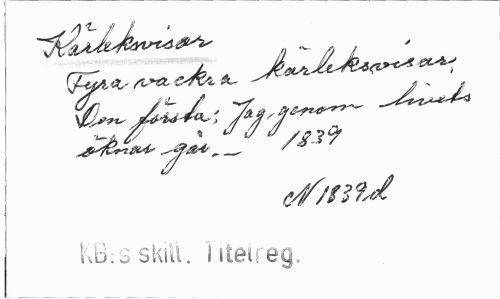 Kärleksvisor
Fyra vackra kärleksvisor.
Den första: Jag genom livets
öknar går.— 1839
N 1839.d
KB:s skill. Titelreg.